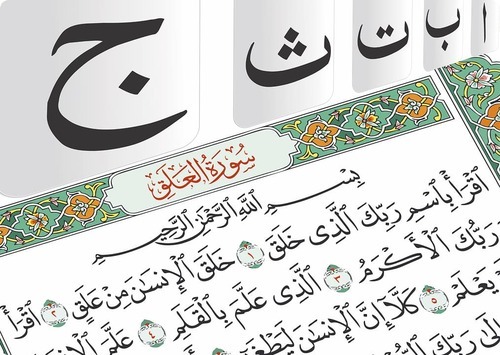 ا ب ت ث ج
سُورَةُ العَلَقِ
بِسْمِ ٱللَّهِ ٱلرَّحْمَٰنِ ٱلرَّحِيمِ
ٱقْرَأْ بِٱسْمِ رَبِّكَ ٱلَّذِى خَلَقَ ۝١ خَلَقَ ٱلْإِنسَٰنَ مِنْ عَلَقٍ ۝٢ ٱقْرَأْ
رَبُّكَ ٱلْأَكْرَمُ ۝٣ ٱلَّذِى عَلَّمَ بِٱلْقَلَمِ ۝٤ عَلَّمَ
يَعْلَمْ ۝٥ كَلَّآ إِنَّ ٱلْإِنسَٰنَ لَيَطْغَىٰٓ